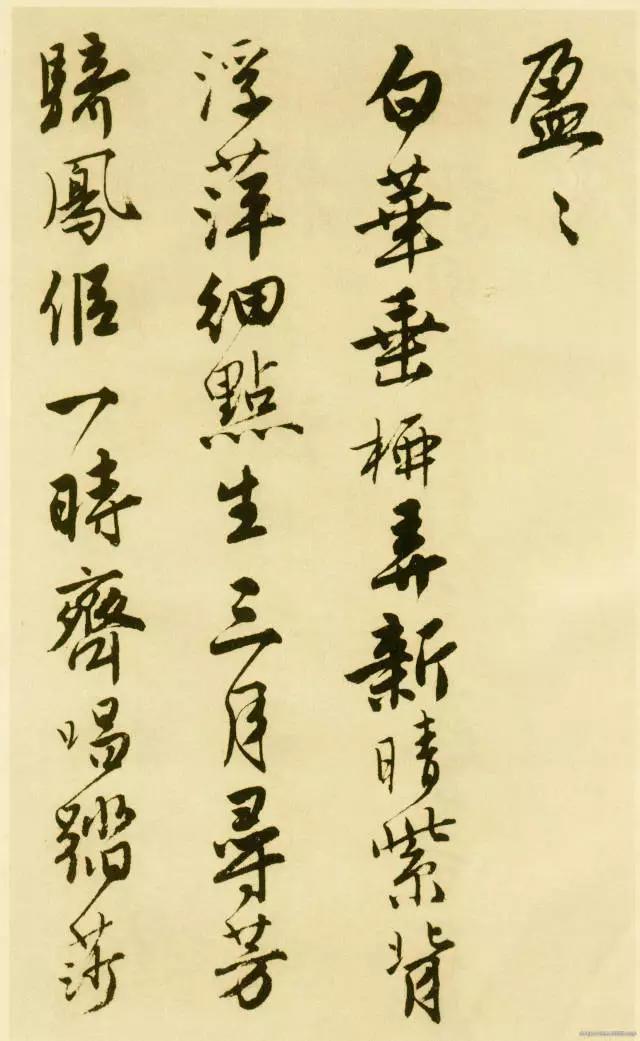 盈〻
白華垂弄新晴紫背
浮萍細點生三月尋芳
騎鳳侣一時齊唱踏莎